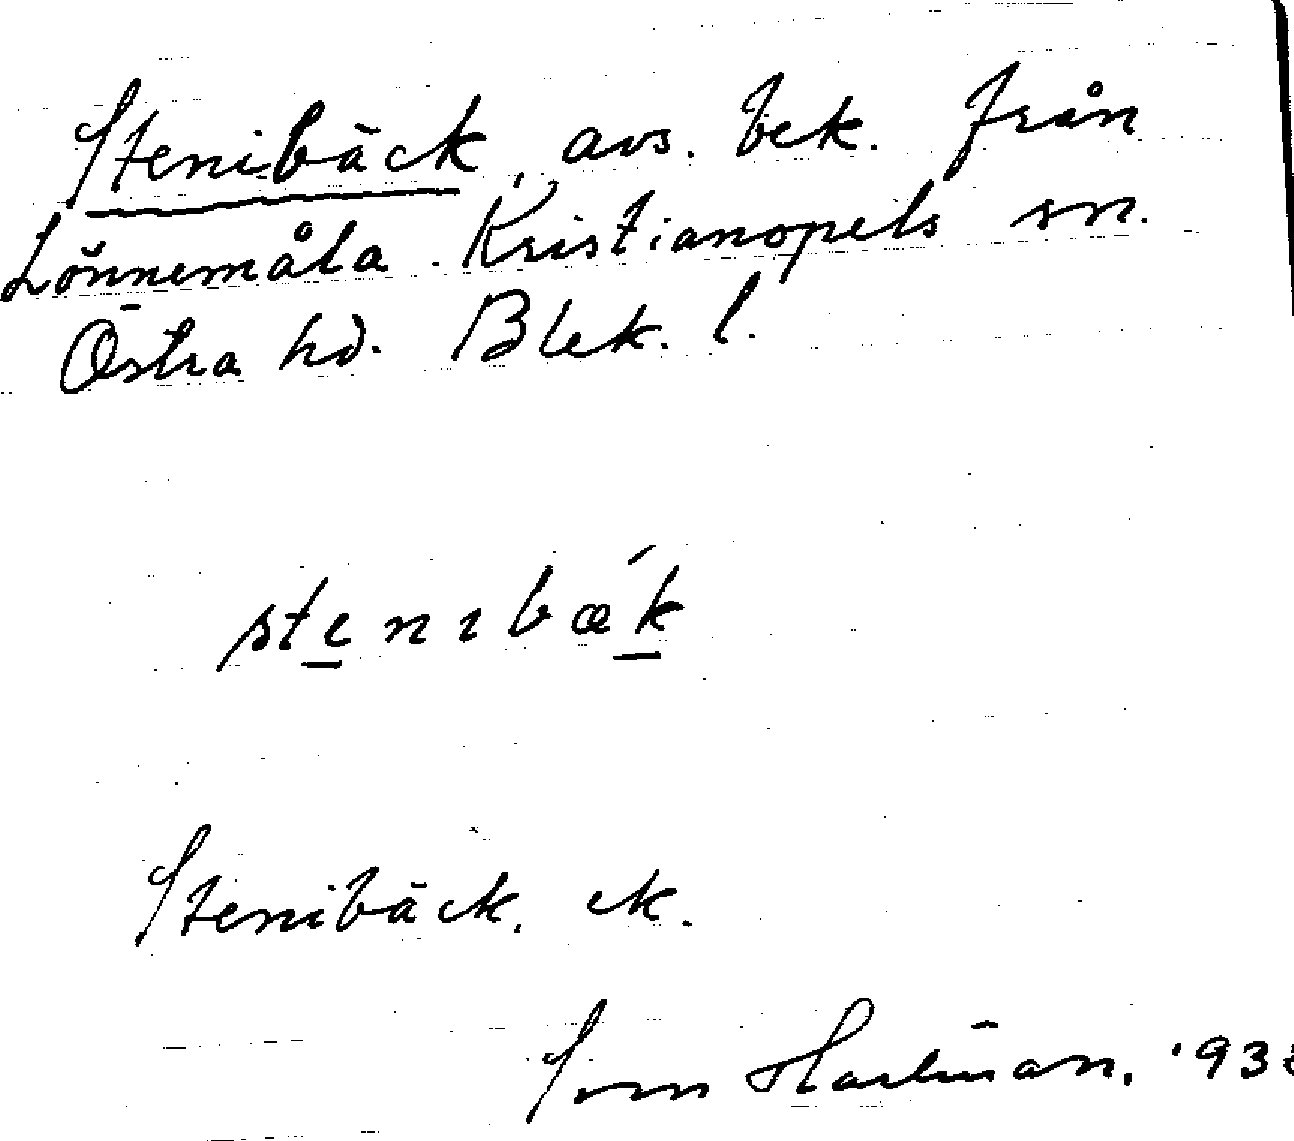 Stenibäck, avs. bek. från
Lönnemåla. Kristianopels sn.
Östra hd. Blek. l.
stenıbæ´k
Stenibäck. ek.
193